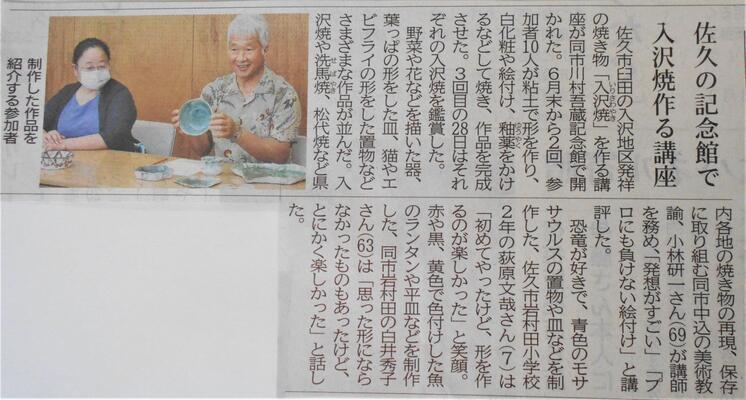 佐久の記念館で
入沢焼作る講座
佐久市臼田の入沢地区発祥
の焼き物「入沢焼」を作る講
座が同市川村吾蔵記念館で開
かれた。６月末から２回、参
加者10人が粘土で形を作り、
白化粧や絵付け、釉薬をかけ
るなどして焼き、作品を完成
させた。３回目の28日はそれ
ぞれの入沢焼を鑑賞した。
野菜や花などを描いた器、
葉っぱの形をした皿、猫やエ
ビフライの形をした置物など
さまざまな作品が並んだ。入
沢焼や洗馬焼、松代焼など県
制作した作品を
紹介する参加者
内各地の焼き物の再現、保存
に取り組む同市中込の美術教
諭、小林研一さん(69)が講師
を務め、「発想がすごい」「プ
ロにも負けない絵付け」と講
評した。
恐竜が好きで、青色のモサ
サウルスの置物や皿などを制
作した、佐久市岩村田小学校
２年の荻原文哉さん(７)は
「初めてやったけど、形を作
るのが楽しかった」と笑顔。
赤や黒、黄色で色付けした魚
のランタンや平皿などを制作
した、同市岩村田の臼井秀子
さん(63)は「思った形になら
なかったものもあったけど、
とにかく楽しかった」と話し
た。